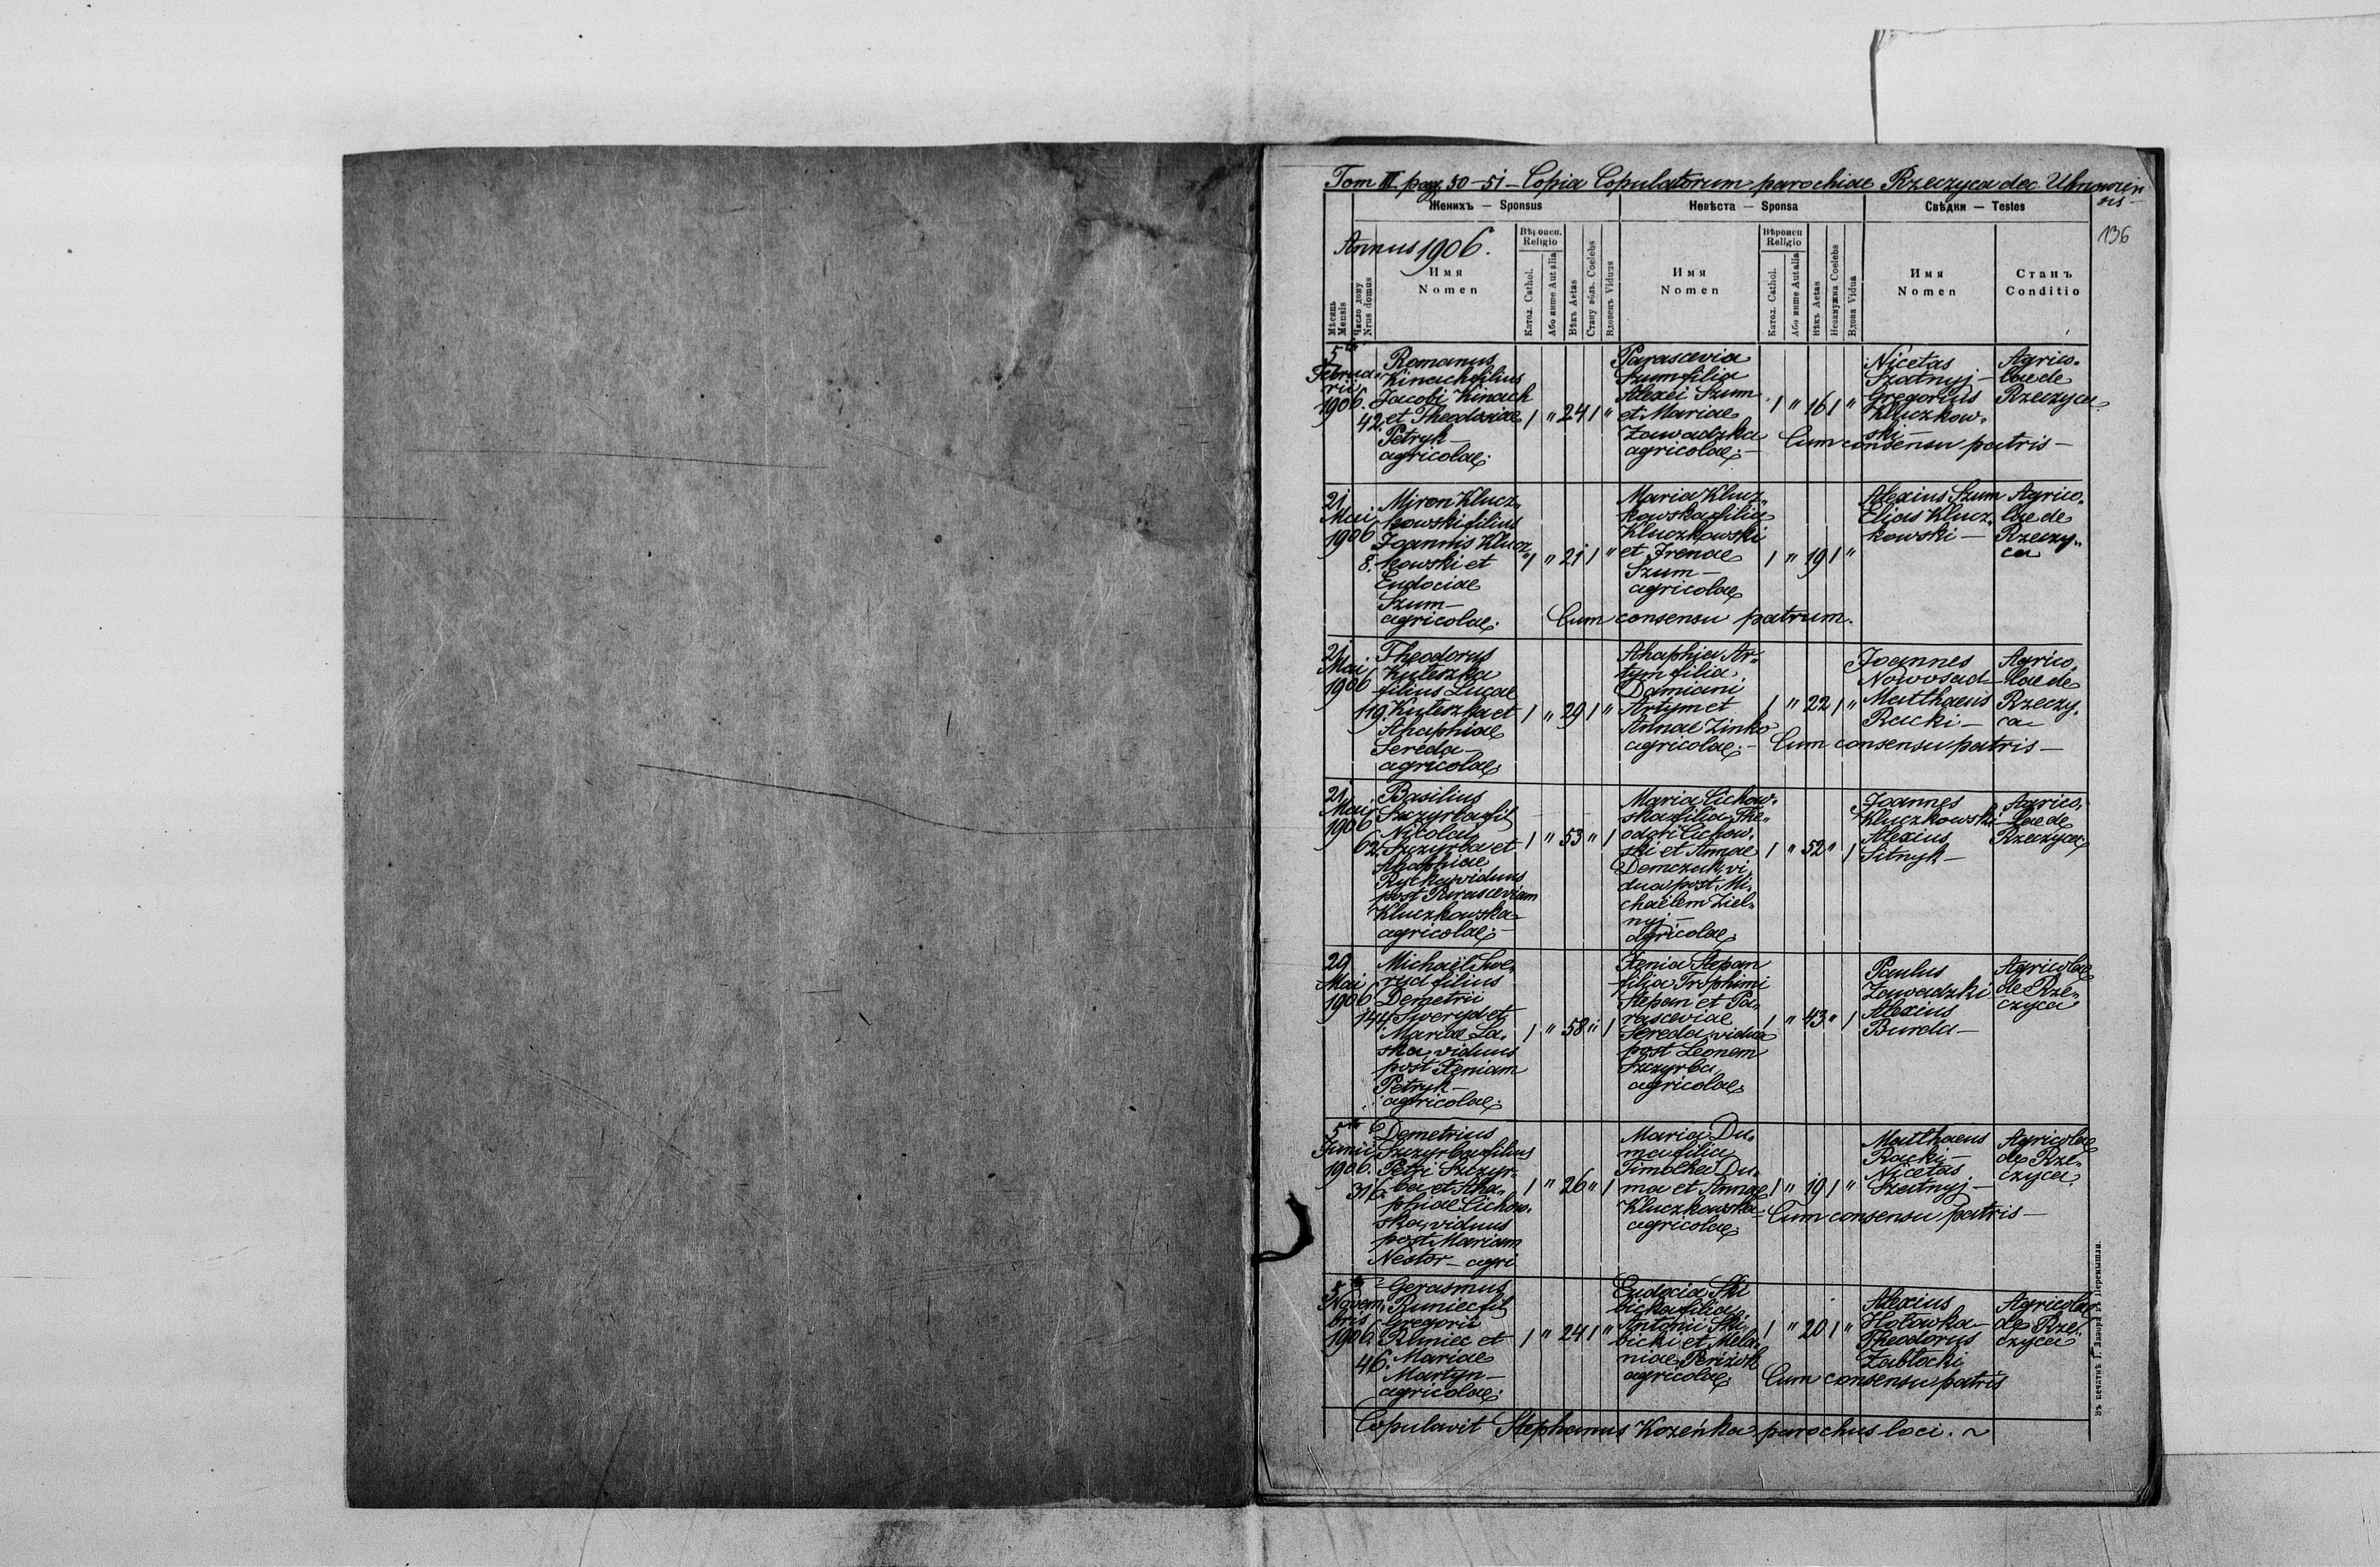 Tom III pag. 50-51 - Copia Copulatorum parochiae Rzeczyca dec. Uhnovien
sis -
136
Женихъ — Sponsus
Невѣста — Sponsa
Свѣдки — Testes
Annus 1906.
Мѣсяць
Mensis
Число дому
Nrus domus
Имя
Nomen
Вѣроисп.
Religio
Катол. Cathol.
Або инше Aut alia
Вѣкъ Aetas
Стану вôль. Coelebs
Вдовець Viduus
Имя
Nomen
Вѣроисп
Religio
Катол. Cathol.
Або инше Aut alia
Вѣкъ Aetas
Незамужна Coelebs
Вдова Vidua
Имя
Nomen
Станъ
Conditio
5
Februa-
rii
1906.
42.
Romanus
Kinach filius
Jacobi Kinach
et Theodosiae
Petryk -
agricolae.
1 " 24 1 "
Parascevia
Szum filia
Alexei Szum
et Mariae
Zawadzka
agricolae. -
1 " 16 1 "
Nicetas
Szatnyj -
Gregorius
Kluczkow-
ski -
Agrico-
lae de
Rzeczyca
Cum consensu patris -
21
Maii
1906
8.
Miron Klucz-
kowski filius
Joannis Klucz-
kowski et
Eudociae
Szum -
agricolae.
1 " 21 1 "
Maria Klucz-
kowska filia
Kluczkowski
et Irenae
Szum -
agricolae
1 " 19 1 "
Alexius Szum
Elias Klucz-
kowski -
Agrico-
lae de
Rzeczy-
ca
Cum consensu patrum.
21
Maii
1906
119.
Theodorus
Kuleszka
filius Lucae
Kuleszka et
Ahaphiae
Sereda -
agricolae.
1 " 29 1 "
Ahaphia Ar-
tym filia
Damiani
Artym et
Annae Zinko
agricolae. -
1 " 22 1 "
Joannes
Nowosad -
Matthaeus
Racki -
Agrico-
lae de
Rzeczy-
ca
Cum consensu patris -
21
Maii
1906
62.
Basilius
Szczyrba fil
Nicolai
Szczyrba et
Ahaphiae
Rytka viduus
post Parasceviam
Kluczkowska -
agricolae. -
1 " 53 " 1
Maria Cichow-
ska filia The-
odori Cichow-
ski et Annae
Demczuk, vi-
dua post Mi-
chaëlem Ziel-
nyj -
agricolae.
1 " 52 " 1
Joannes
Kluczkowski -
Alexius
Sitnyk -
Agrico-
lae de
Rzeczyca
29
Maii
1906
144
Michaël Swe-
ryd filius
Demetrii
Sweryd et
Mariae La-
ska, viduus
post Xeniam
Petryk -
agricolae.
1 " 58 " 1
Xenia Stepan
filia Trophimi
Stepan et Pa-
rasceviae
Sereda, vidua
post Leonem
Szczyrba
agricolae.
1 " 43 " 1
Paulus
Zawadzki
Alexius
Burda -
Agricolae
de Rze-
czyca
5
Junii
1906.
316.
Demetrius
Szczyrba filius
Petri Szczyr-
ba et Aha-
phiae Cichow-
ska viduus
post Mariam
Nestor - agri
1 " 26 " 1
Maria Du-
ma filia
Timothei Du-
ma et Annae
Kluczkowska -
agricolae.
1 " 19 1 "
Matthaeus
Racki -
Nicetas
Szatnyj -
Agricolae
de Rze-
czyca
Cum consensu patris -
5
Novem-
bris
1906
46.
Gerasmus
Runiec fil
Gregorii
Runiec et
Mariae
Martyn -
agricolae.
1 " 24 1 "
Eudocia Ski
bicka filia
Antonii Ski-
bicki et Mela-
niae Perizok
agricolae.
1 " 20 1 "
Alexius
Hołowka -
Theodorus
Zabłocki
Agricolae
de Rze-
czyca
Cum consensu patris
Copulavit Stephanus Kozeńka parochus loci. ~